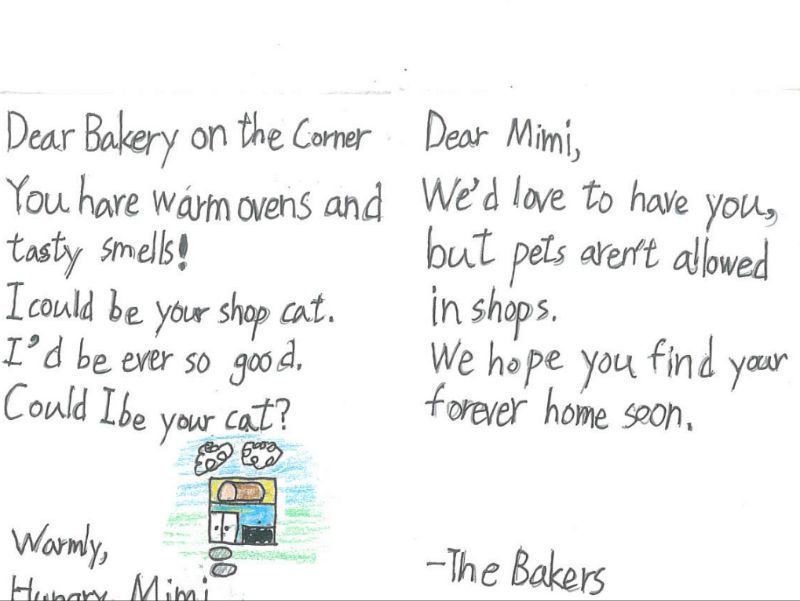 Dear Bakery on the Corner
You have warm ovens and
tasty smells!
I could be your shop cat.
I'd be ever so good.
Could I be your cat?
Warmly,
Hungry Mimi
Dear Mimi,
We'd love to have you,
but pets aren't allowed
in shops.
We hope you find your
forever home soon.
-The Bakers